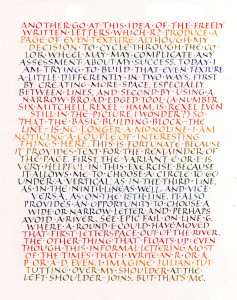 ANOTHER GO AT THIS IDEA OF THE FREELY
WRITTEN LETTERS WHICH R? PRODUCE A
PAGE OF EVEN TEXTURE, ALTHOUGH MY
DECISION TO CYCLE THROUGH THE CO-
LOR WHEEL MAY COMPLICATE ANY
ASSESSMENT ABOUT MY SUCCESS. TODAY I
AM TRYING TO BUILD THAT EVEN TEXTURE
A LITTLE DIFFERENTLY IN TWO WAYS, FIRST
BY CREATING MORE SPACE, ESPECIALLY
BETWEEN LINES, AND SECOND BY USING A
NARROW BROAD EDGED TOOL (A NUMBER
SIX MITCHELL REXEL - HAM, IS REXEL EVEN
STILL IN THE PICTURE I WONDER?) SO
THAT THE BASIC BUILDING BLOCK - THE
LINE - IS NO LONGER A MONOLINE. I AM
NOTICING A COUPLE OF INTERESTING
THINGS HERE. THIS IS FORTUNATE BECAUSE
IT PROVIDES TEXT FOR THE REMAINDER OF
THE PAGE. FIRST, THE VARIANT E OR E IS
VERY HELPFUL IN THIS EXERCISE BECAUSE
IT ALLOWS ME TO CHOOSE A CIRCLE TO GO
UNDER A VERTICAL, AS IN THE THIRD LINE,
AS IN THE NINTH LINE AS WELL, AND VICE
VERSA, AS ON THE 15TH LINE. IT ALSO
PROVIDES AN OPPORTUNITY TO CHOOSE A
WIDE OR NARROW LETTER AND PERHAPS
AVOID A RIVER, SEE EPIC FAIL ON LINE 6
WHERE A ROUND E COULD HAVE MOVED
THAT FIRST LETTERSPACE OUT OF THE RIVER.
THE OTHER THING THAT FLOATS UP, EVEN
THOUGH THIS IS INFORMAL LETTERING, MOST
OF THE TIMES THAT I WRITE AN R OR A
P OR A D, EVEN, I IMAGINE JULIAN TUT
TUTTING OVER MY SHOULDER AT THE
LEFT-SHOULDER JOINS, BUT THAT'S ME.